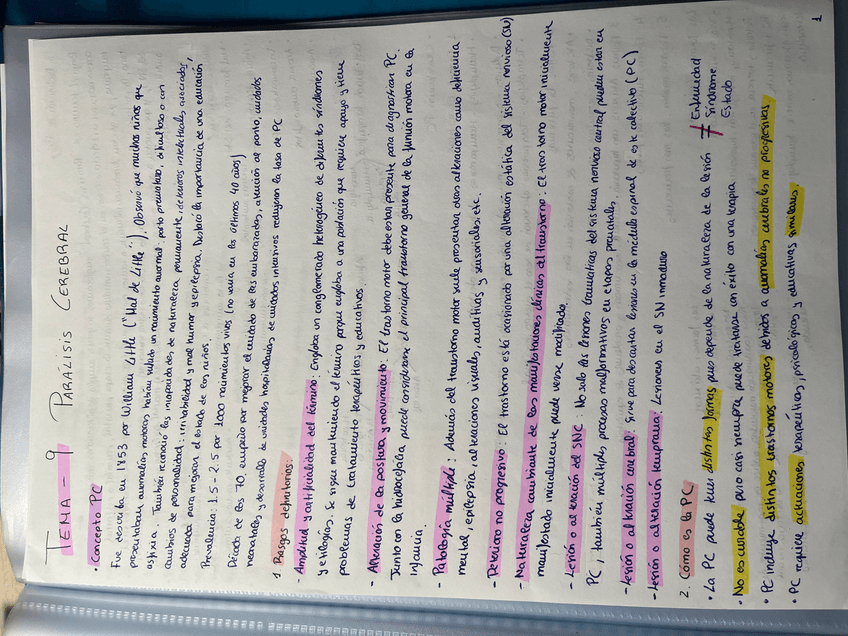 TEMA - 9 PARÁLISIS CEREBRAL
• Concepto PC
Fue descrita en 1853 por William Little ("Mal de Little"). Observó que muchos niños que
presentaban anomalías motoras habían sufrido un nacimiento anormal: parto prematuro, dificultoso o con
asfixia. También reconoció las incapacidades de naturaleza permanente, deterioros intelectuales asociados,
cambios de personalidad: irritabilidad y mal humor y epilepsia. Destacó la importancia de una educación
adecuada para mejorar el estado de los niños.
Prevalencia: 1.5 - 2.5 por 1000 nacimientos vivos (no varía en los últimos 40 años)
Década de los 70, empeño por mejorar el cuidado de las embarazadas, atención al parto, cuidados
neonatales y desarrollo de unidades hospitalarias de cuidados intensivos redujeron la tasa de PC
1. Rasgos definitorios:
- Amplitud y artificialidad del término: Engloba un conglomerado heterogéneo de diferentes síndromes
y etiologías. Se sigue manteniendo el término porque engloba a una población que requiere apoyo y tiene
problemas de tratamiento terapéuticos y educativos.
- Alteración de la postura y movimiento: El trastorno motor debe estar presente para diagnosticar PC.
Junto con la hidrocefalia, puede considerarse el principal trastorno general de la función motora en la
infancia.
- Patología múltiple: Además del trastorno motor suele presentar otras alteraciones como deficiencia
mental, epilepsia, alteraciones visuales, auditivas y sensoriales, etc.
- Deterioro no progresivo: El trastorno está ocasionado por una alteración estática del sistema nervioso (SN)
- Naturaleza cambiante de las manifestaciones clínicas del trastorno: El trastorno motor inicialmente
manifestado inicialmente puede verse modificado.
- Lesión o alteración del SNC: No solo las lesiones traumáticas del sistema nervioso central pueden estar en
PC, también múltiples procesos malformativos en etapas prenatales.
- Lesión o alteración cerebral: Sirve para descartar lesiones en la médula espinal de este colectivo (PC)
- Lesión o alteración temprana: Lesiones en el SN inmaduro
2. Cómo es la PC
• La PC puede tener distintas formas pues depende de la naturaleza de la lesión ≠ Enfermedad
Síndrome
Estado
• No es curable pero casi siempre puede tratarse con éxito con una terapia
• PC incluye distintos trastornos motores debidos a anomalías cerebrales no progresivas
• PC requiere actuaciones terapéuticas, psicológicas y educativas similares.
1